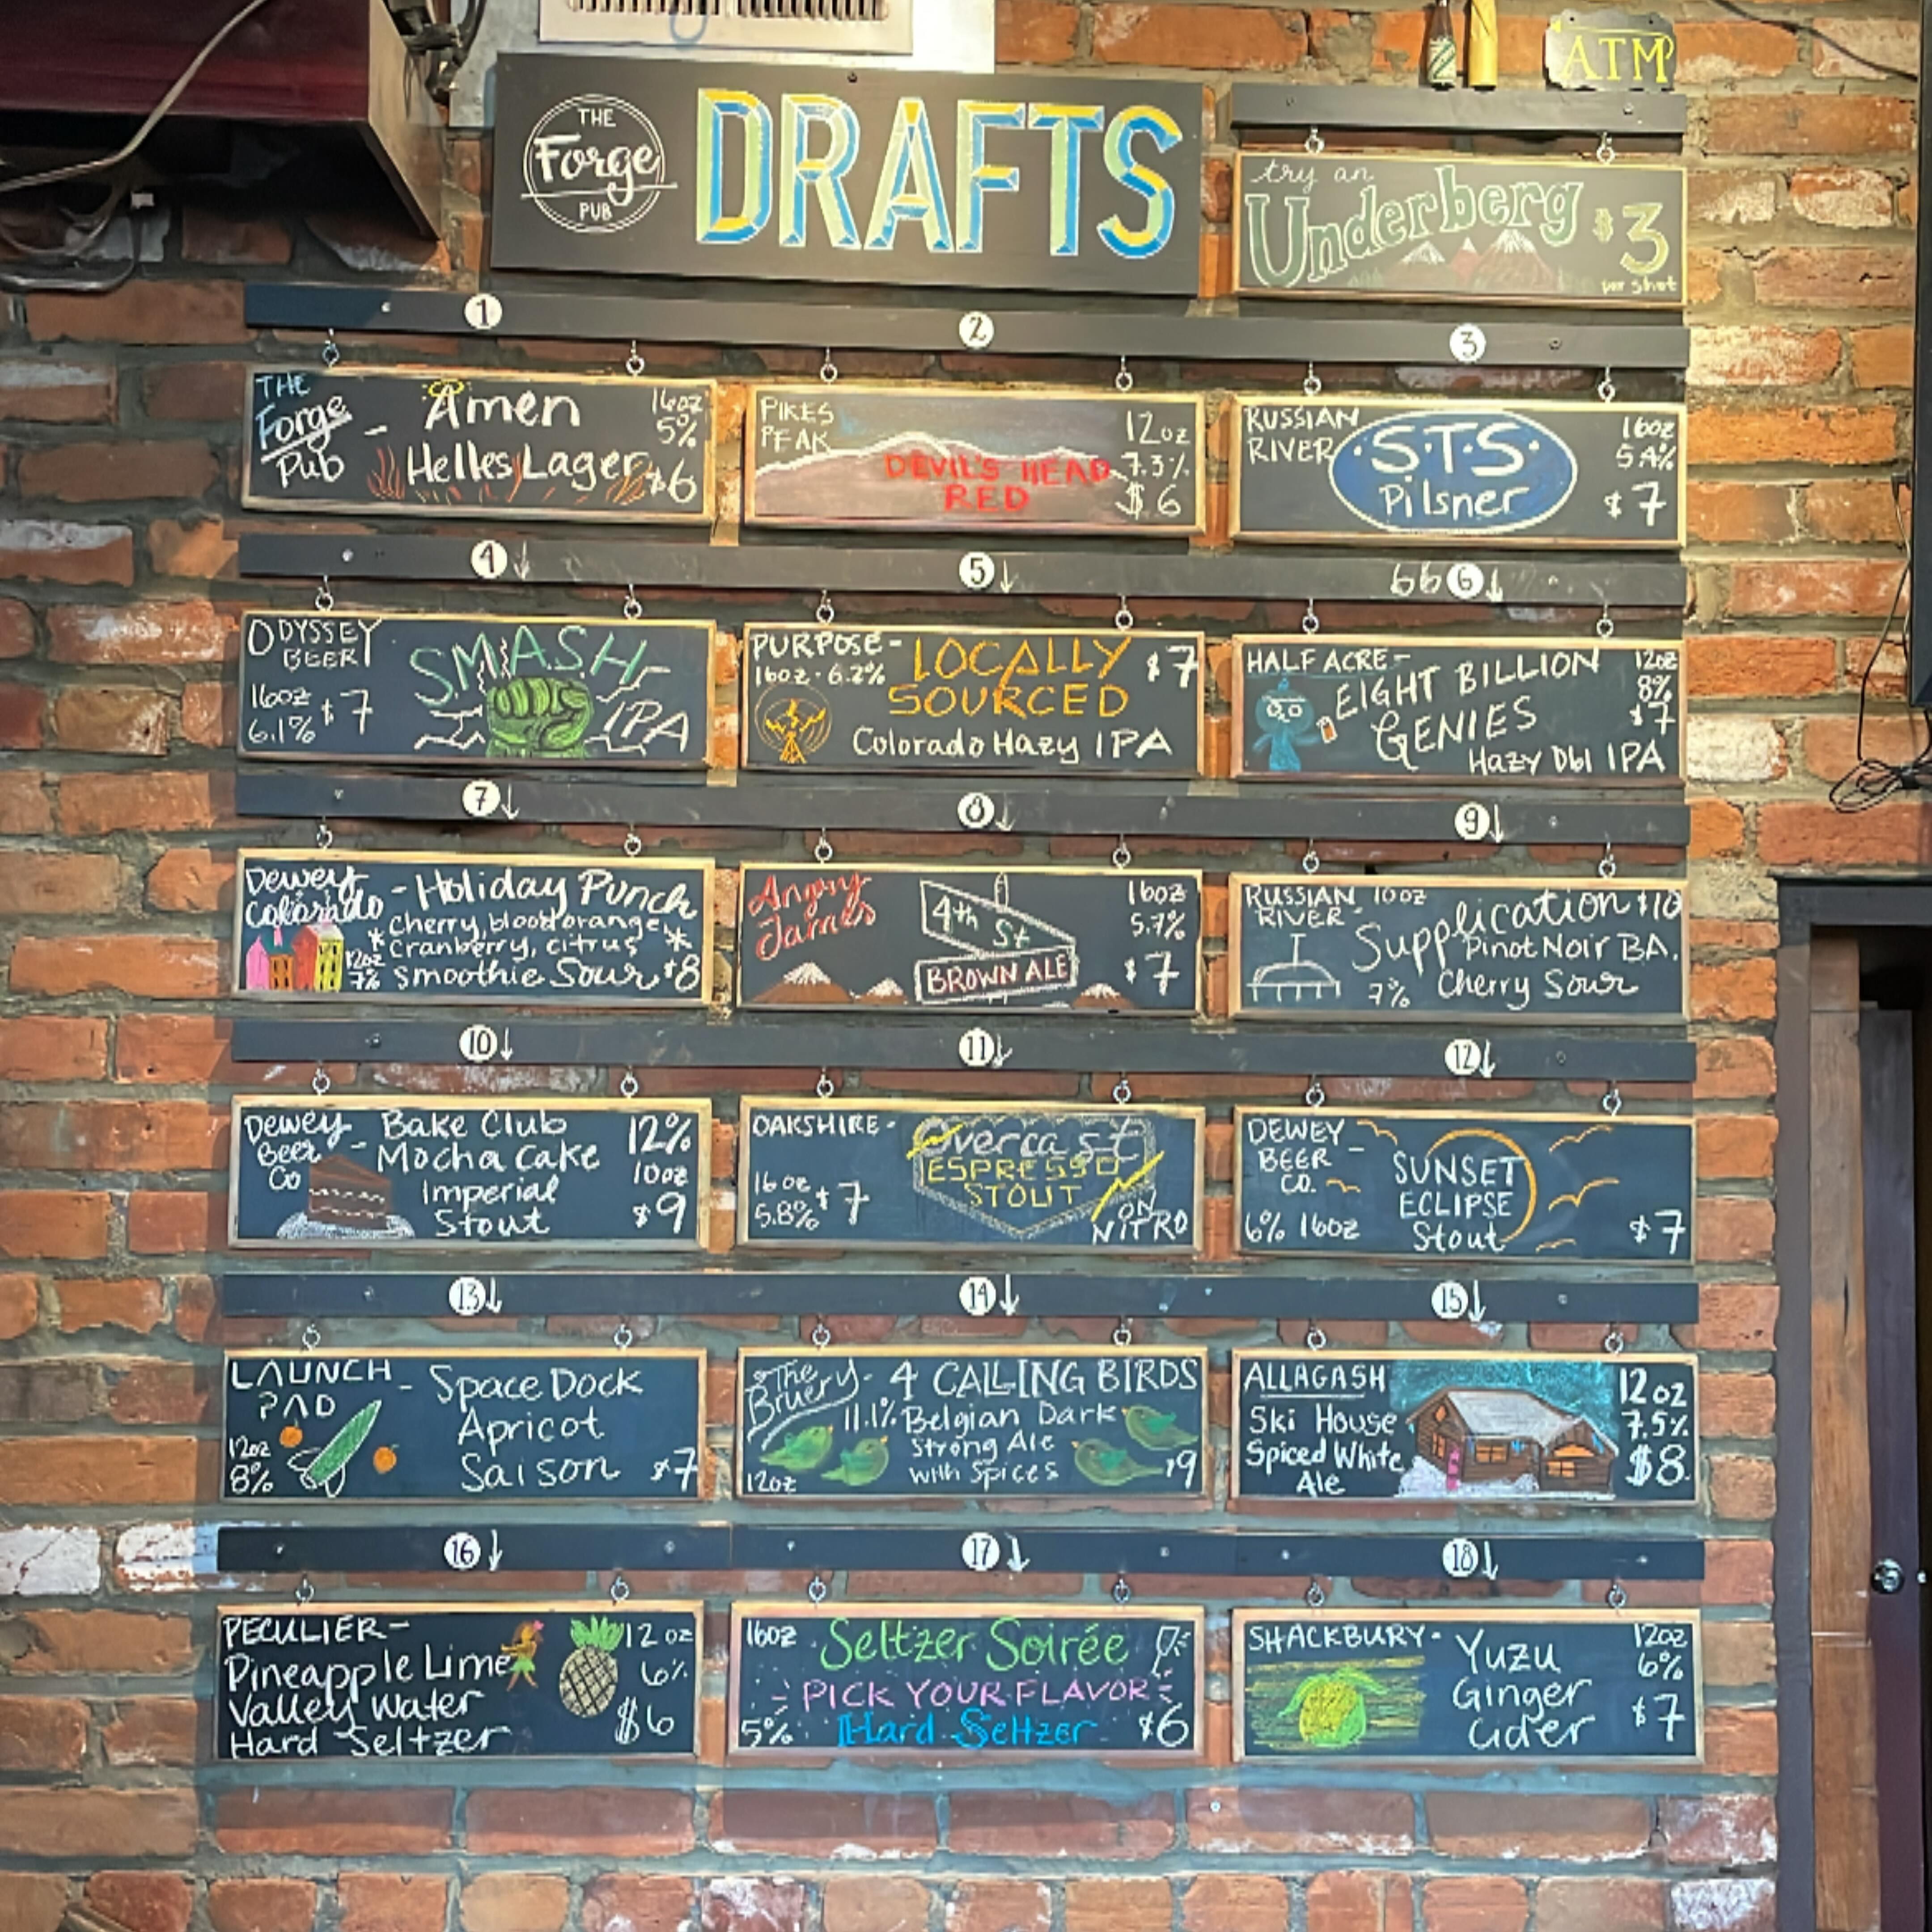 ATM
THE
Forge
PUB
DRAFTS
try an
Underberg $3
per shot
1
2
3
THE
Forge
Pub
- Amen
Helles Lager
16oz
5%
$6
PIKES
PEAK
DEVIL'S HEAD
RED
12oz
7.3%
$6
RUSSIAN
RIVER
S.T.S.
Pilsner
16oz
5.4%
$7
4
5
666
ODYSSEY
BEER
16oz
6.1%
$7
S.M.A.S.H-
IPA
PURPOSE-
16oz · 6.2%
LOCALLY
SOURCED
$7
Colorado Hazy IPA
HALF ACRE-
EIGHT BILLION
GENIES
Hazy Dbl IPA
12oz
8%
$7
7
8
9
Dewey
Colorado
- Holiday Punch
Cherry, blood orange,
* Cranberry, citrus *
Smoothie Sour $8
12oz
7%
Angry
James
4th St
BROWN ALE
16oz
5.7%
$7
RUSSIAN
RIVER-
10oz
Supplication $10
Pinot Noir BA.
Cherry Sour
7%
10
11
12
Dewey
Beer
Co
- Bake Club
Mocha Cake
Imperial
Stout
12%
10oz
$9
OAKSHIRE-
16oz
5.8%
$7
Overcast
ESPRESSO
STOUT
ON
NITRO
DEWEY
BEER -
CO.
6% 16oz
SUNSET
ECLIPSE
Stout
$7
13
14
15
LAUNCH
PAD
- Space Dock
Apricot
Saison
12oz
8%
$7
The
Bruery - 4 CALLING BIRDS
11.1% Belgian Dark
Strong Ale
with Spices
12oz
$9
ALLAGASH
Ski House
Spiced White
Ale
12oz
7.5%
$8
16
17
18
PECULIER-
Pineapple Lime
Valley Water
Hard Seltzer
12oz
6%
$6
16oz
Seltzer Soirée
PICK YOUR FLAVOR
5%
Hard Seltzer
$6
SHACKBURY-
Yuzu
Ginger
Cider
12oz
6%
$7